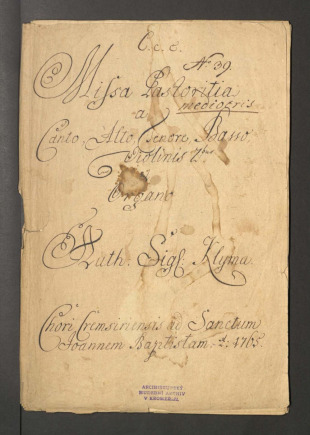 C. e. c.
N: 39.
Missa Pastoritia
mediocris
a
Canto, Alto, Tenore, Basso,
Violinis 2bus
Organo
Auth. Sigl: Klyma
Chori Cremsiriensis ad Sanctum
Joannem Baptistam. A: 1765.
ARCIBISKUPSKÝ
HUDEBNÍ ARCHIV
V KROMĚŘÍŽI